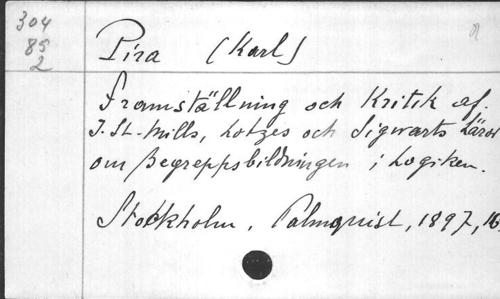 304
85
2
Pira (Karl)
Framställning och Kritik af.
J. St. Mills, Lotzes och Sigwarts Läror
om Begreppsbildningen i Logiken.
Stockholm, Palmquist, 1897, 16.